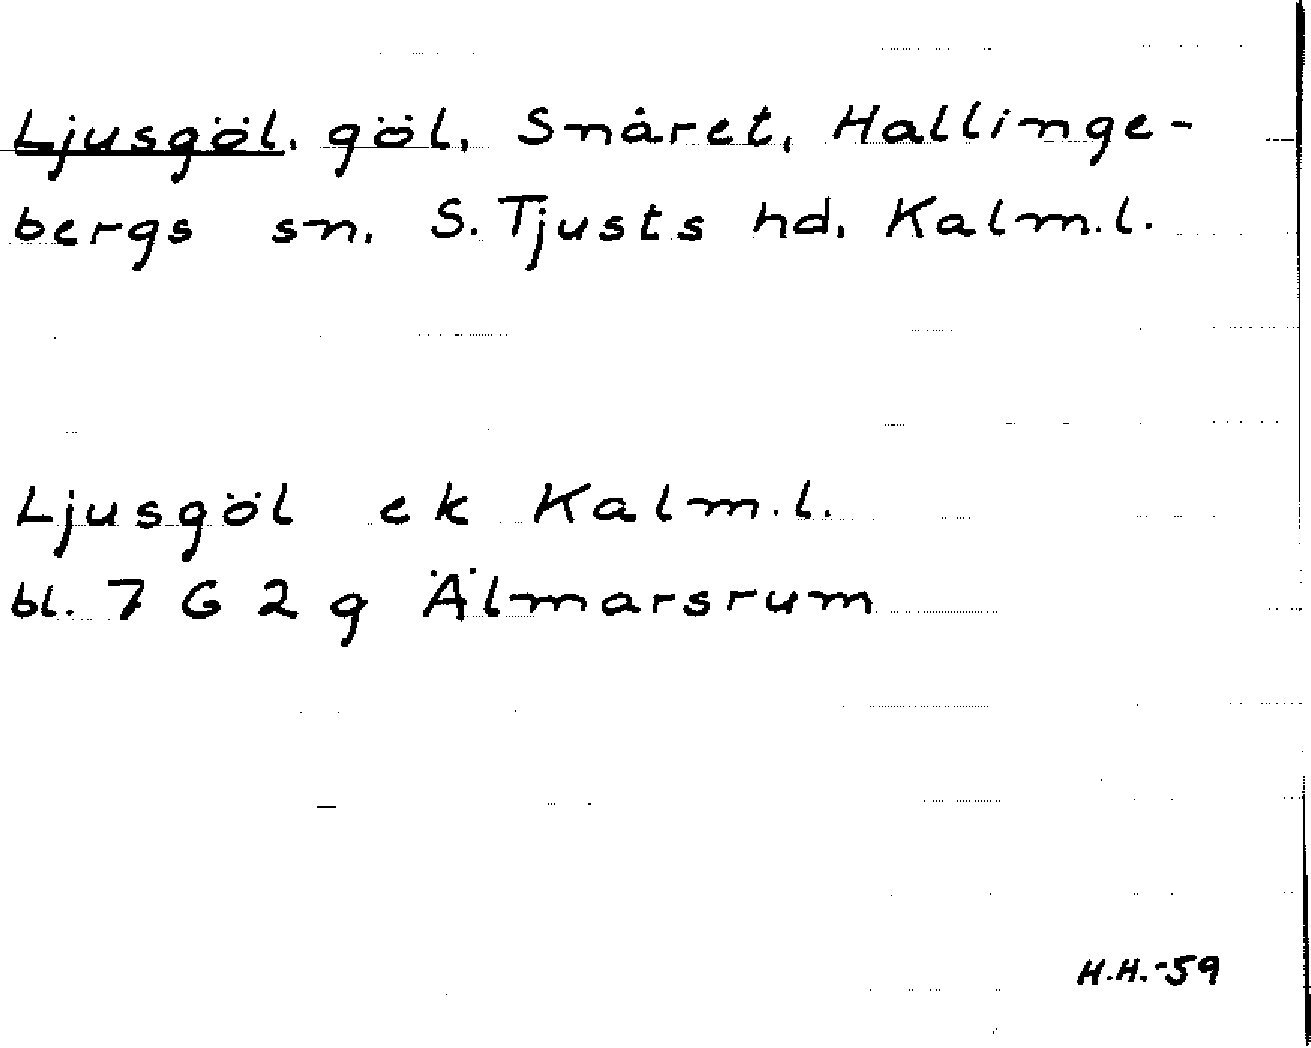 Ljusgöl. göl, Snåret, Hallinge-
bergs sn. S. Tjusts hd. Kalm.l.
Ljusgöl ek Kalm.l.
bl. 7 G 2 g Älmarsrum
H.H.-59